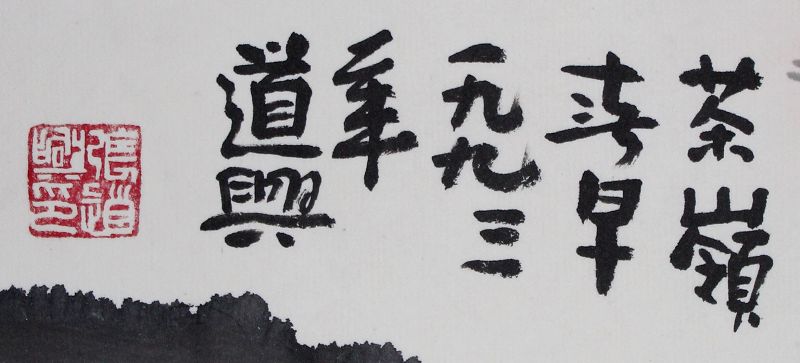 茶嶺
春早
一九九三
年
道興
張道
興印